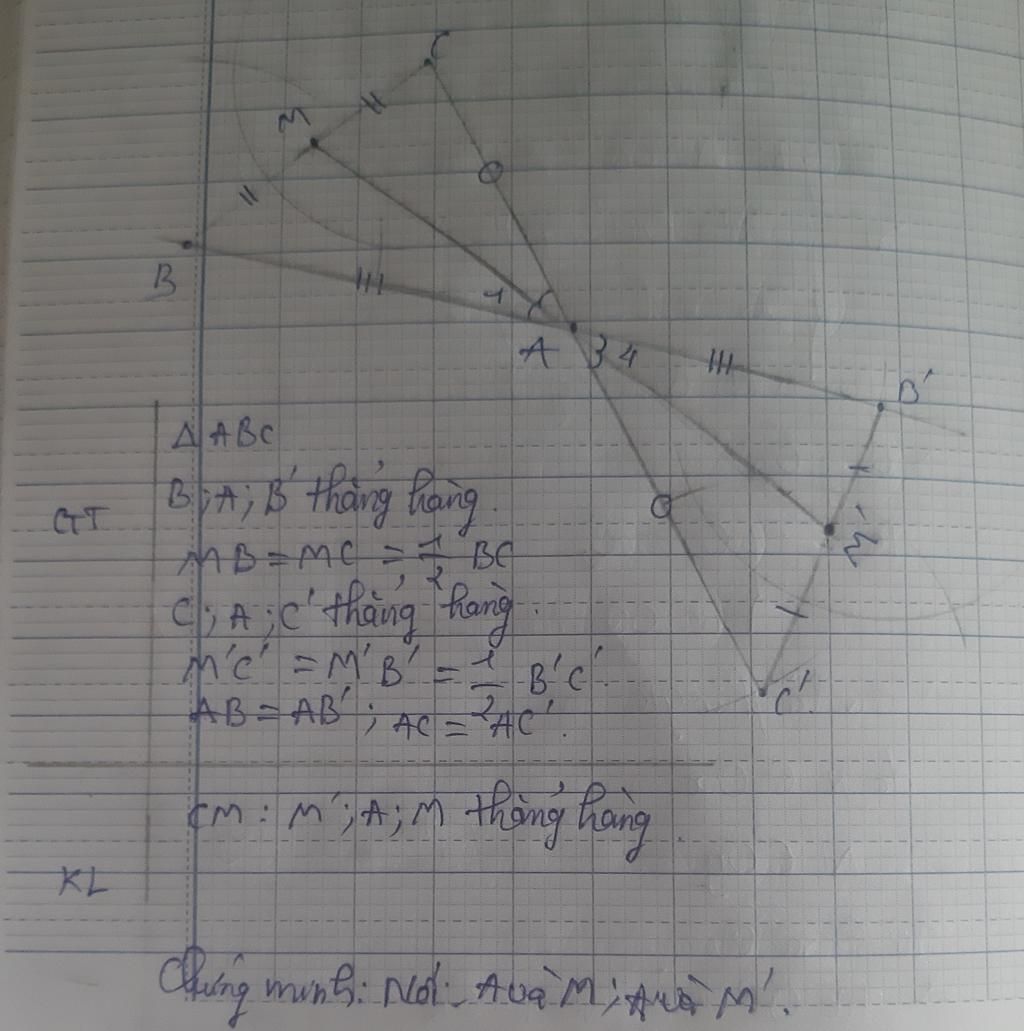 C
M
B
1
A
3 4
B'
M'
C'
Δ ABC
GT
B; A; B' thẳng hàng.
MB = MC = 1/2 BC
C; A; C' thẳng hàng.
M'C' = M'B' = 1/2 B'C'.
AB = AB'; AC = AC'.
CM: M'; A; M thẳng hàng.
KL
Chứng minh: Nối A và M; A và M'.